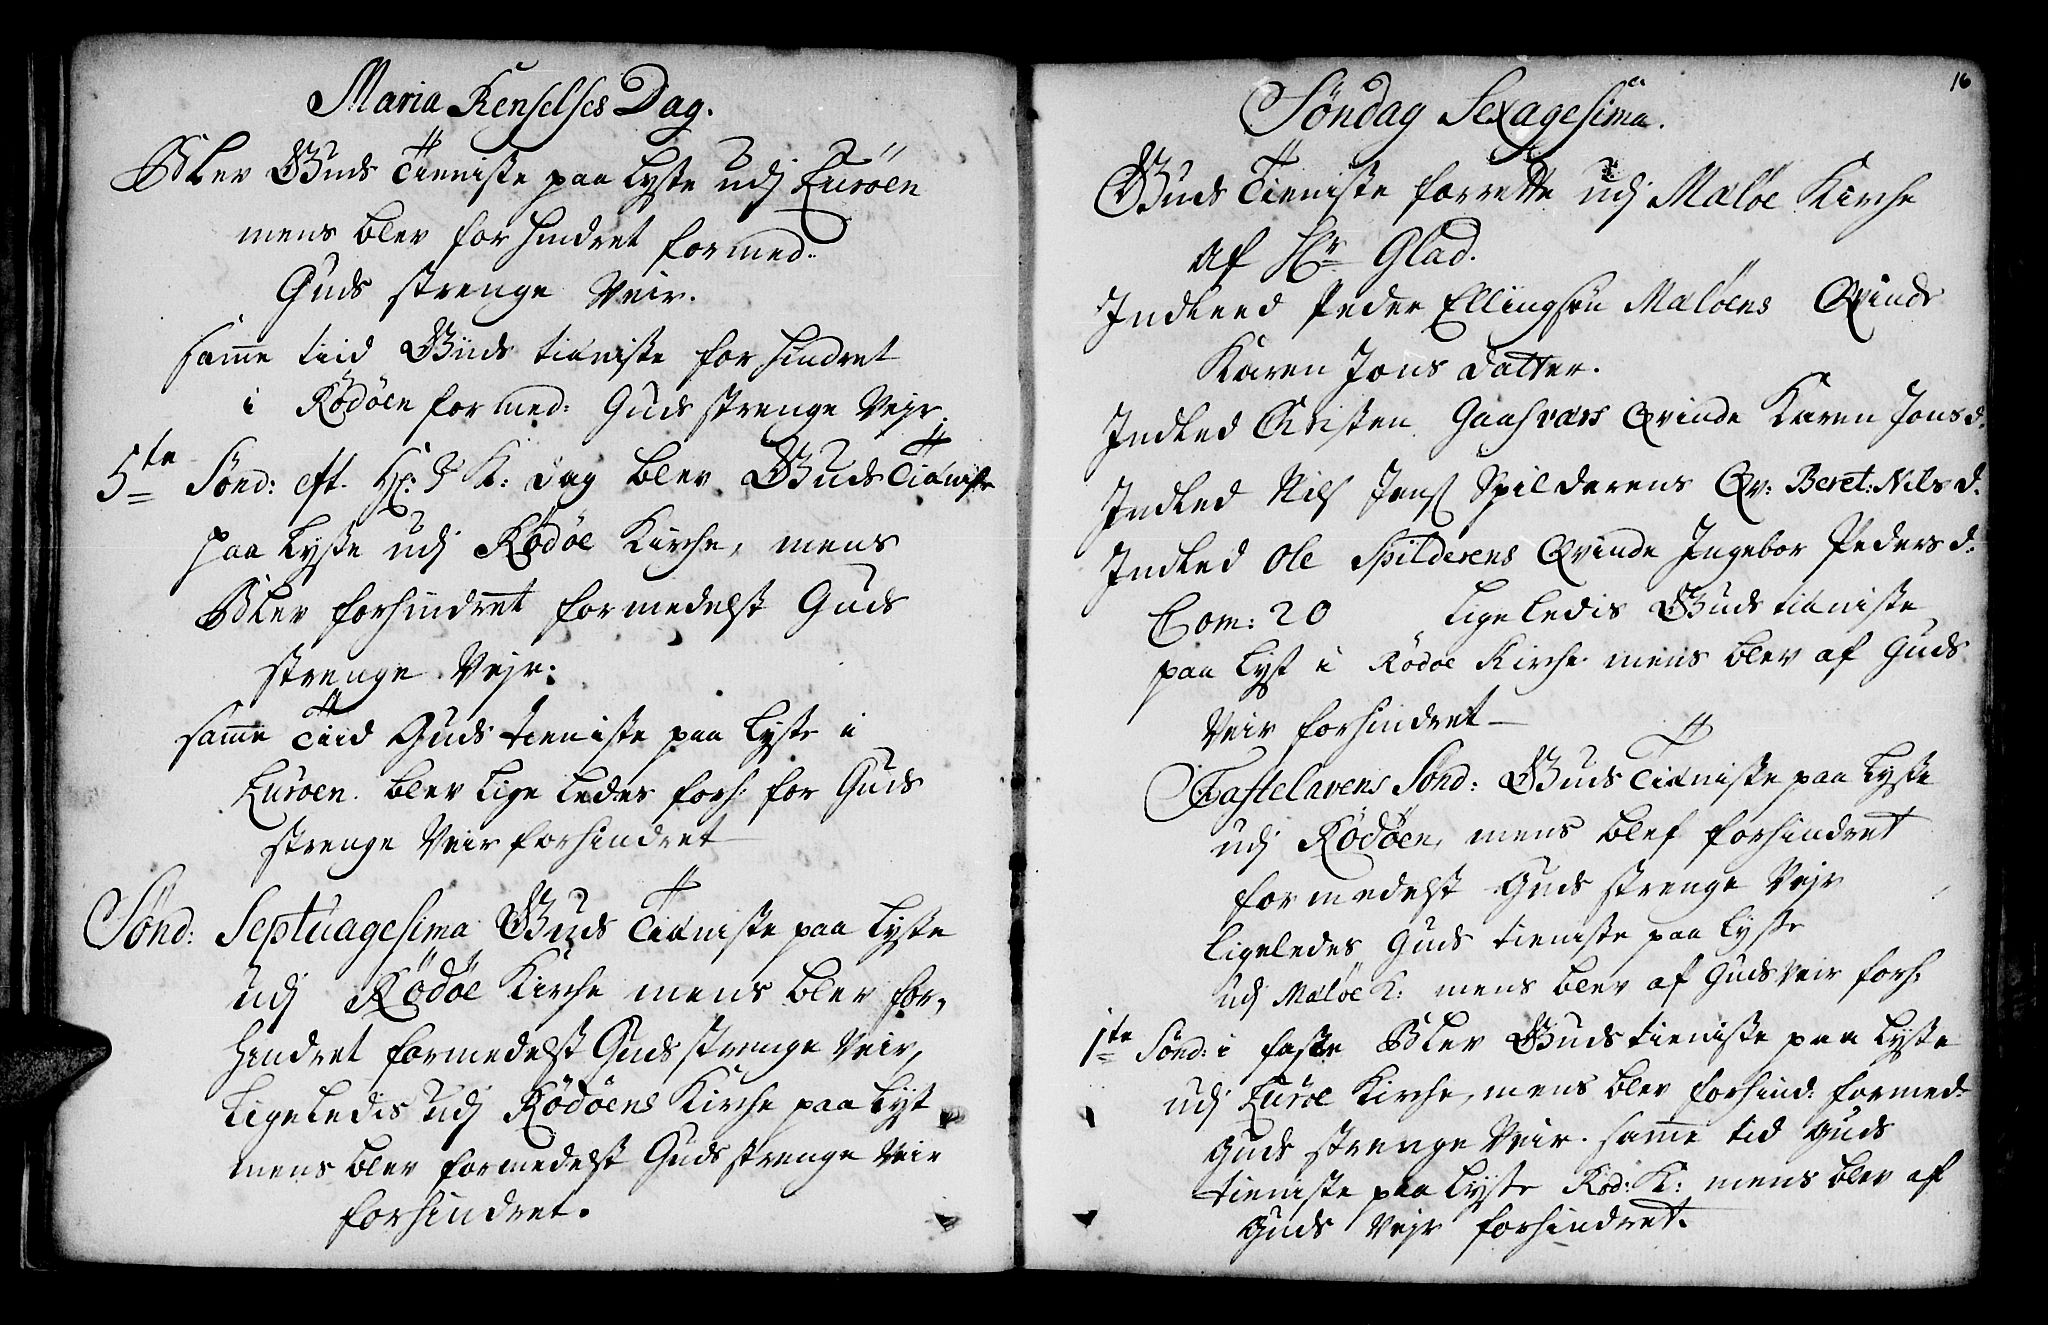 Maria Renselses Dag.
Blev Guds Tieniste paa lyste udj Lurøen
mens blev forhindret formed.
Guds strenge Veir.
samme tiid Guds tieniste forhindret
i Rödöen formed: Guds strenge Vejr.
5te Sönd: eft. H: 3 K: Dag blev Guds Tieniste
paa lyste udj Rödöe Kirche, mens
Blev forhindret formedelst Guds
strenge Vejr:
samme Tiid Guds tieniste paa lyste i
Luroen. blev lige ledes forh: for Guds
strenge Veir forhindret
Sönd: Septuagesima Guds Tieniste paa lyste
udj Rödöe Kirche mens blev for,
hindret formedelst Guds strenge Veir,
Ligeledis udj Rödöens Kirche paa lyst
mens blev formedelst Guds strenge Veir
forhindret.
16
Söndag Sexagesima.
Guds Tieniste forrette udj Maløe Kirche
af Hr Glad.
Indleed Peder Ellingsön Maløens Qvinde
Karen Jons datter.
Indled Christen Gaasværs Qvinde Karen Jonsd.
Indled Nils Jens Spilderens Qv: Beret: Nilsd.
Indled Ole Spilderens Qvinde Ingebor Pedersd.
Com: 20 Ligeledis Guds tieniste
paa lyst i Rödoe Kirche mens blev af Guds
Veir forhindret
Fastelavens Sönd: Guds Tieniste paa lyste
udj Rödöen, mens blef forhindret
formedelst Guds strenge Vejr
ligeledes Guds tieniste paa lyste
udj Maløe K: mens blev af Guds Veir forh:
1te Sönd: i faste Blev Guds tieniste paa lyste
udj Luröe Kirche, mens blev forhind: formed:
Guds strenge Veir. samme tid Guds
tieniste paa lyste Röd: K: mens blev af
Guds Vejr forhindret.